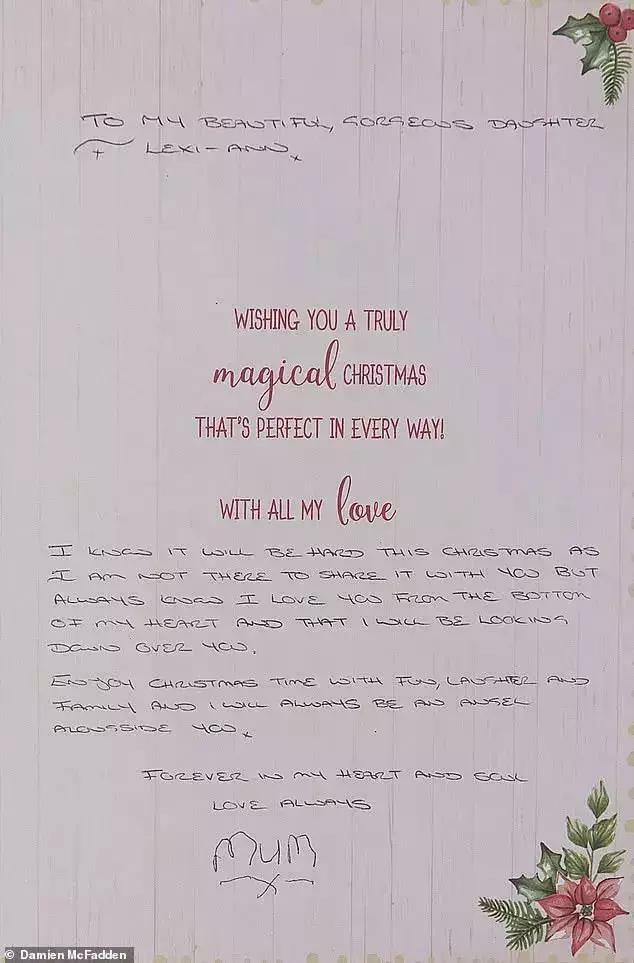 TO MY BEAUTIFUL, GORGEOUS DAUGHTER
LEXI-ANN x
WISHING YOU A TRULY
magical CHRISTMAS
THAT'S PERFECT IN EVERY WAY!
WITH ALL MY love
I KNOW IT WILL BE HARD THIS CHRISTMAS AS
I AM NOT THERE TO SHARE IT WITH YOU BUT
ALWAYS KNOW I LOVE YOU FROM THE BOTTOM
OF MY HEART AND THAT I WILL BE LOOKING
DOWN OVER YOU.
ENJOY CHRISTMAS TIME WITH FUN, LAUGHTER AND
FAMILY AND I WILL ALWAYS BE AN ANGEL
ALONGSIDE YOU x
FOREVER IN MY HEART AND SOUL
LOVE ALWAYS
MUM
x
© Damien McFadden